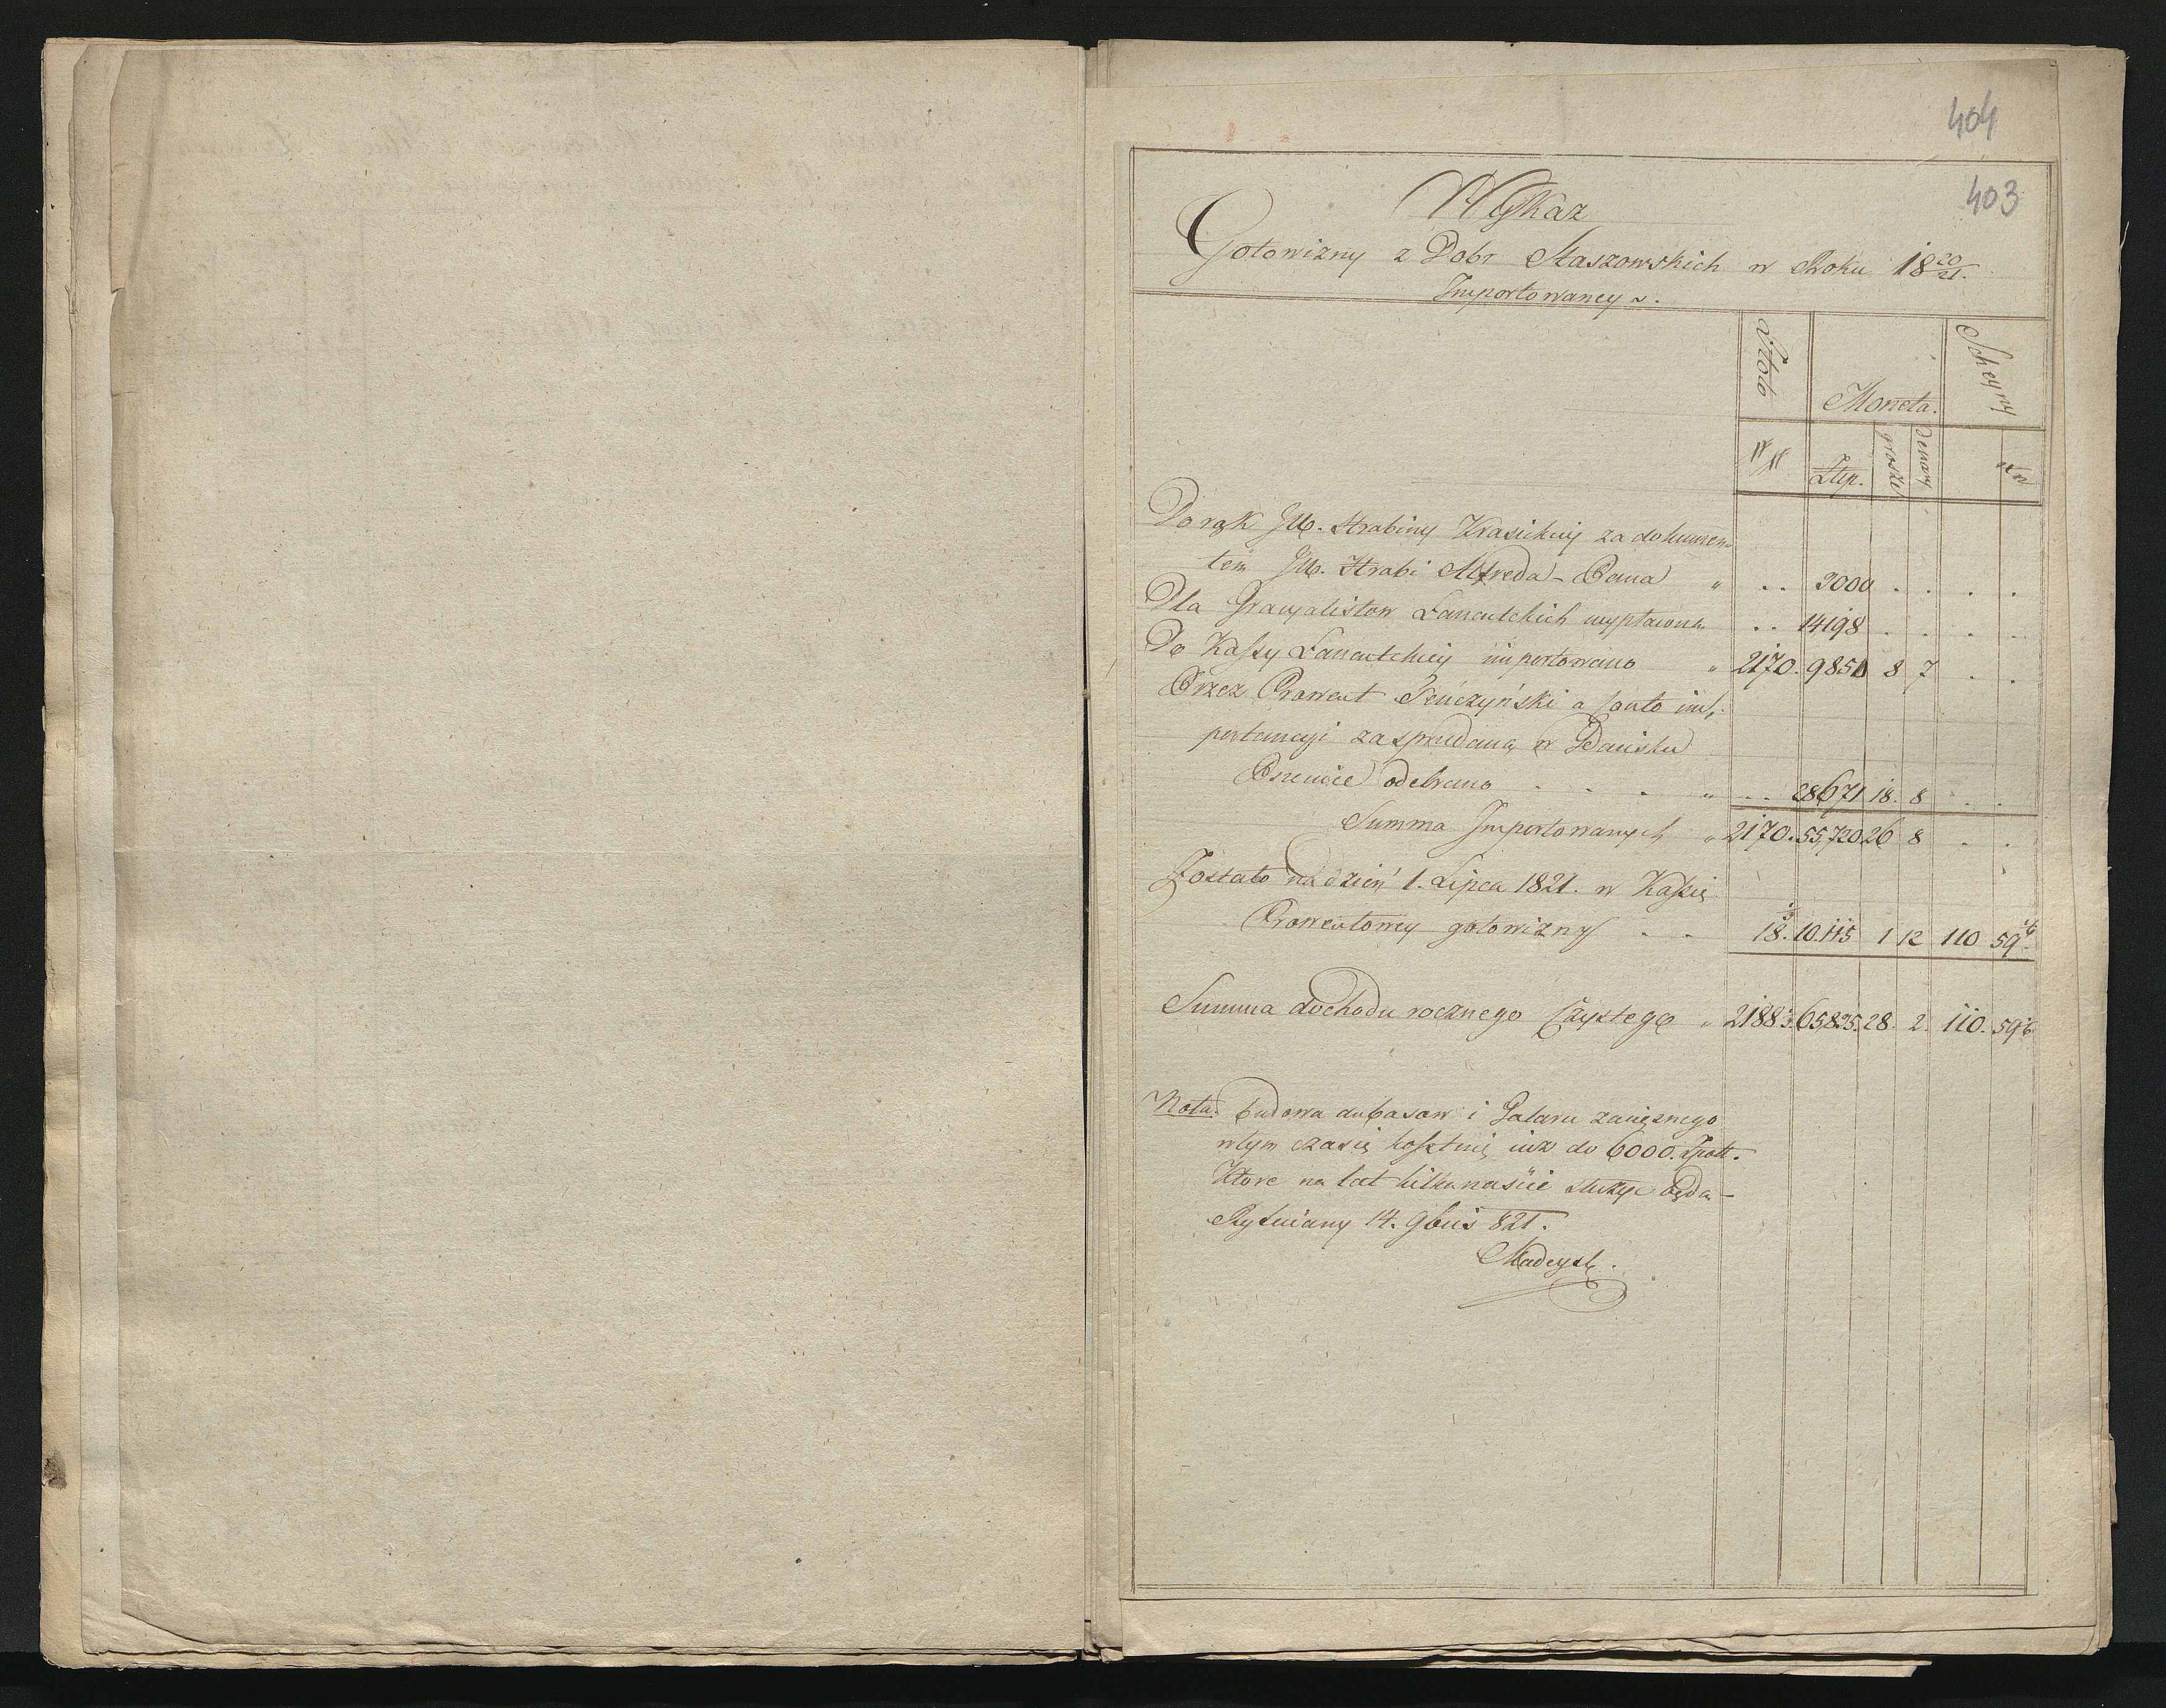 404
403
Wykaz
Gotowizny z Dobr Staszowskich w Roku 18 20/21.
Importowaney
Złoto Moneta. Scheyny
## Złp. grosze Denary
Do rąk JW. Hrabiny Krasickiey za dokumen-
tem JW. Hrabi Alfreda - Pana " .. 3000 . . . .
Dla Gracyalistow Łancutckich wypłacono .. 14198 . . . .
Do Kassy Łancutckiey importowano " 2170. 9851 8 7 . .
Przez Prowent Ręczyński a Conto im-
portancyi za sprzedaną w Dańsku
Pszenice odebrano . . . " .. 28671 18. 8 . .
Summa Importowanych " 2170. 55,720 26 8 . .
Zostało na dzień 1. Lipca 1821. w Kassie
Prowentowey gotowizny . . 18. 10.115 1 12 110 59
Summa dochodu rocznego Czystego " 2188 65,835. 28. 2. 110. 59
Nota. budowa dubasow i Galaru
w tym czasie kosztuie iuż do 6000. Złpoll.
Które na lat kilkanaście służyć będą -
Rytwiany 14. 9bris 821.
Madeysk.